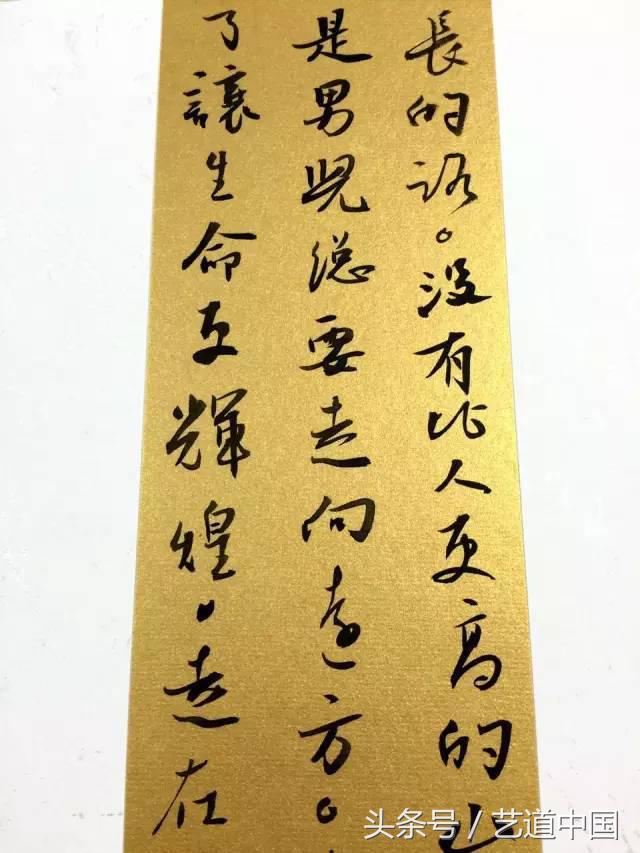 長的路。没有比人更高的山
是男兒總要走向遠方。
了讓生命更輝煌。走在
头条号 / 艺道中国